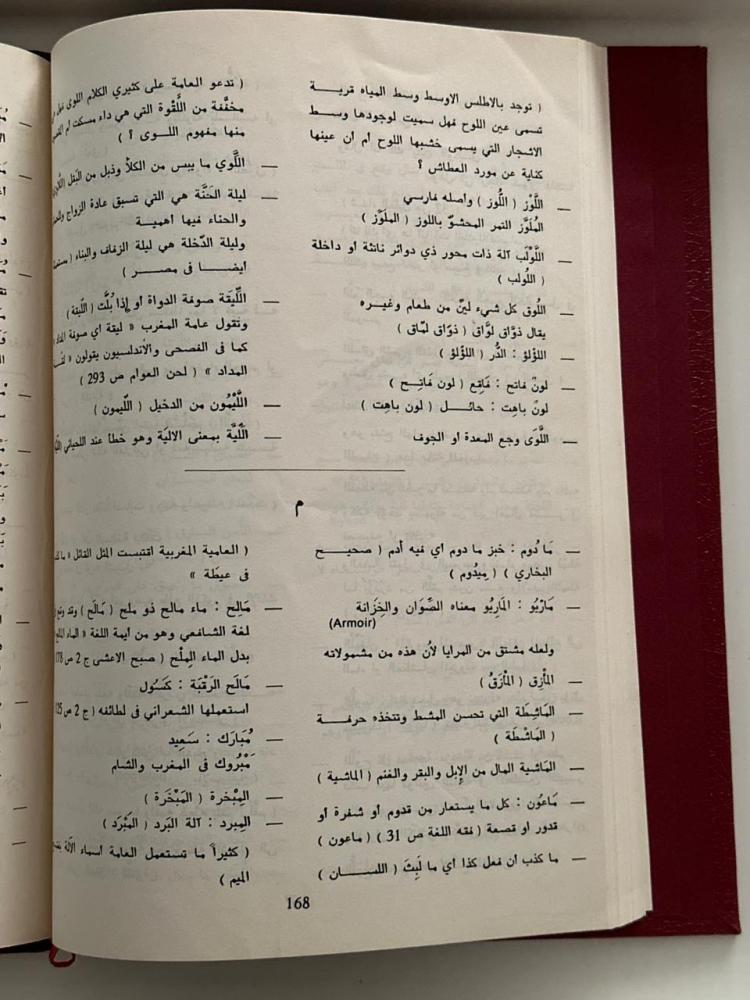 ( توجد بالاطلس الاوسط وسط المياه قريـــة
تسمى عين اللوح فهل سميت لوجودها وسـط
الاشجار التي يسمى خشبها اللوح أم أن عينها
كناية عن مورد العطاش ؟
— اللَّوْز ( اللُّوز ) وأصله فارسي
المُلَوَّز التمر المحشوّ باللوز ( الملَوّز )
— اللَّوْلَب آلة ذات محور ذي دوائر ناتئة أو داخلة
( اللُولب )
— اللُّوق كل شيء ليّن من طعام وغيـره
يقال ذوَّاق لوَّاق ( ذوّاق لبّاق )
— اللؤلؤ : الدُّر ( اللؤلؤ )
— لونٌ فاتح : فاقِع ( لون فاتِـح )
لونٌ باهِت : حائــل ( لون باهِت )
— اللَّوَى وجع المعدة أو الجوف
( تدعو العامة على كثيري الكلام اللوى فهل
مخففة من اللَّقوة التي هي داء مسكت أم
منها مفهوم اللــوى ؟ )
— اللَّوي ما يبس من الكلأ وذبل من البَقل
— ليلة الحَنَّة هي التي تسبق عادة الزواج
والحناء فيها أهمية
وليلة الدّخلة هي ليلة الزفاف والبناء
أيضـــا فى مصـــر )
— اللِّيقَة صوفة الدواة أو إذا بُلَّت ( اللّيقة )
وتقول عامة المغرب « ليقة أي صوفة
كما فى الفصحى والأندلسيون يقولون «
المداد » ( لحن العوام ص 293 )
— اللَّيْمُون من الدخيل ( اللّيمون )
— اللِّيَّة بمعنى الاليَة وهو خطأ عند اللحياني
م
— مَا دُوم : خبز ما دوم أي فيه أدم ( صحيــح
البخاري ) ( مِيدُوم )
— مَارْيُو : المَارِيُو معناه الصِّوَان والخِزَانة
(Armoir)
ولعله مشتق من المرايا لأن هذه من مشمولاته
— المأْزِق ( المْأْزَقُ )
— المَاشِطَة التي تحسن المشط وتتخذه حرفــة
( المَاشْطَة )
— المَاشية المال من الإبل والبقر والغنم ( الماشية )
— مَاعُون : كل ما يستعار من قدوم أو شفرة أو
قدور أو قصعة ( فقه اللغة ص 31 ) ( ماعون )
— ما كذب أن فعل كذا أي ما لَبِثَ ( اللســان )
( العامية المغربية اقتبست المثل القائل «
فى عيطَة »
— مَالِح : ماء مالح ذو ملح ( مَالَح )
لغة الشافعي وهو من أيمة اللغة «
بدل الماء المِلْح ( صبح الاعشى ج 2 ص
— مَالَح الرَقْبَة : كَسُول
استعملها الشعراني فى لطائفه ( ج 2 ص
— مُبَارَك : سَعِيد
مَبْرُوك فى المغرب والشام
— المِبْخرة ( المَبْخَرَة )
— المِبرد : آلة البَرد ( المَبْرَد )
( كثيراً ما تستعمل العامة أسماء الآلة
الميم )
168